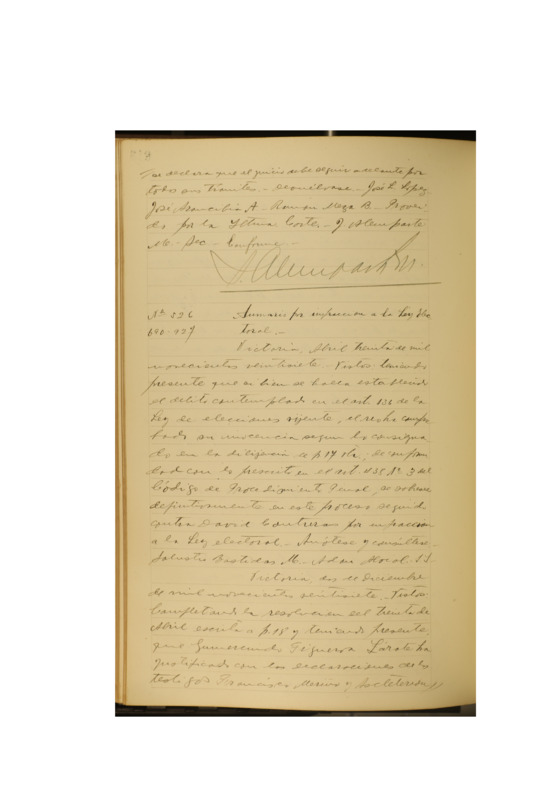 se declara que el juicio debe seguir adelante por
todos sus trámites.- Devuélvase.- José L. López
José A. Ramón Meza B.- Provei-
do por la Iltma Corte.- J. Alemparte
Sec.- Conforme.-
Nº 326 Sumario por infracción a la Ley Elec
690-927 toral.-
Victoria, Abril treinta de mil
novecientos veintisiete. Vistos: teniendo
presente que si bien se halla establecido
el delito contemplado en el art. de la
Ley de elecciones vijente, el reo ha compro
bado su inocencia según lo consigna
do en la dilijencia de f. 17 vta; de confor
dad con lo prescrito en el art. 438 Nº 3 del
Código de Procedimiento Penal, se sobresee
definitivamente en este proceso seguido
contra David Contreras por infracción
a la Ley electoral.- Anótese y consúltese.
Salustio Bastidas M.-
Victoria, dos de Diciembre
de mil novecientos veintisiete. Vistos:
Completando la resolución del treinta de
Abril escrita a f. 18 y teniendo presente
que Gumercindo Figueroa Zárate ha
justificado con las declaraciones de los
testigos Francisco Merino y